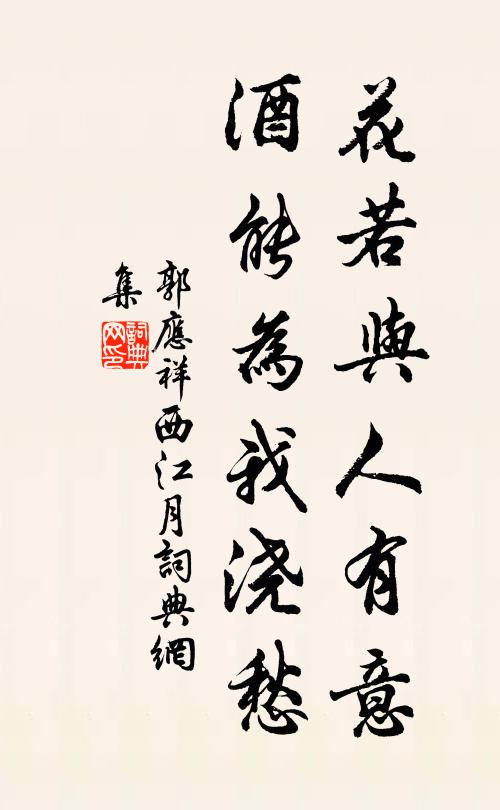 花若與人有意
酒能為我浇愁
郭應祥西江月詞典網
集
詞典网印